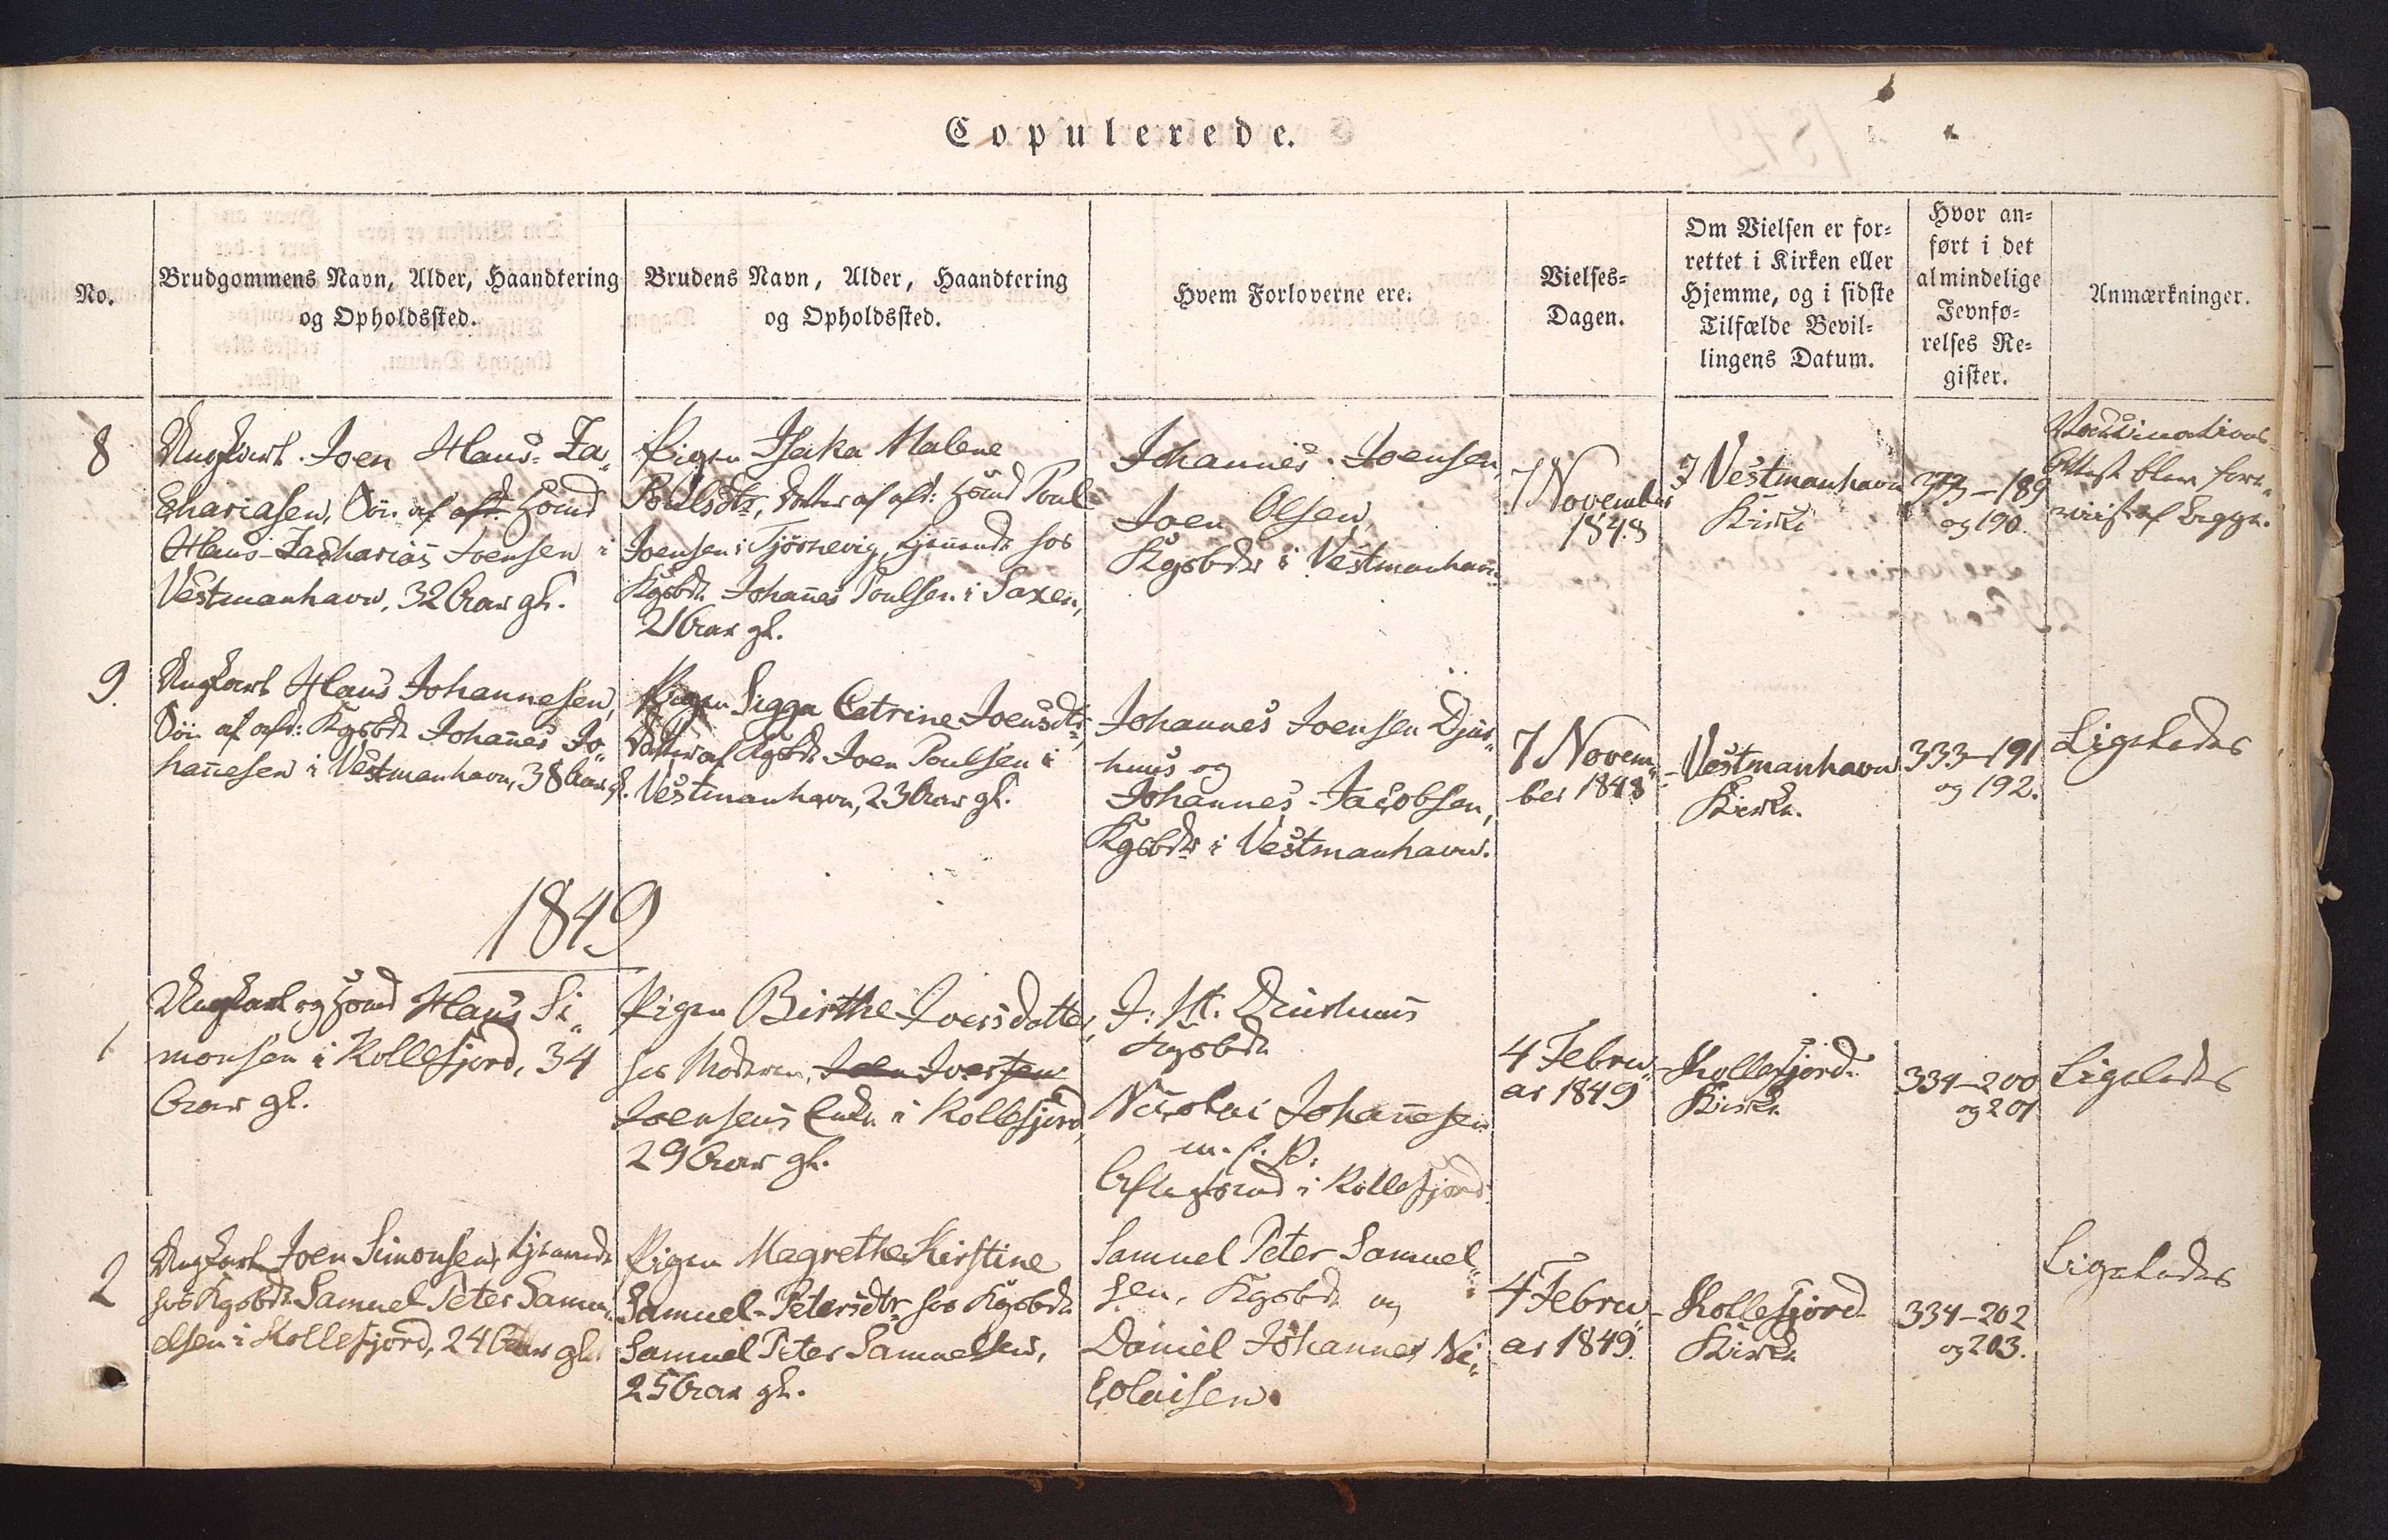 Copulerede.
No.
Brudgommens Navn, Alder, Haandtering
og Opholdssted.
Brudens Navn, Alder, Haandtering
og Opholdssted.
Hvem Forloverne ere:
Vielses=
Dagen.
Om Vielsen er for=
rettet i Kirken eller
Hjemme, og i sidste
Tilfælde Bevil=
lingens Datum.
Hvor an=
ført i det
almindelige
Jevnfø=
relses Re=
gister.
Anmærkninger.
8
Ungkarl Joen Hans Za„
chariasen, Søn af afd.
Hans Zacharias Joensen i
Vestmanhavn, 32 Aar gl.
Pigen Isaka Malene
Poulsdtr, Datter af afd: Poul
Joensen i Tjørnevig, tjenende hos
Kgsbde Johannes Poulsen i Saxen,
21 Aar gl.
Johannes Joensen,
Joen Olsen,
Kgsbdr i Vestmanhavn
7 November
1848
I Vestmanhavn
Kirke
373–189
og 190.
Vaccinations
Attest blev fore„
viist af begge.
9.
Ungkarl Hans Johannesen,
Søn af afd: Kgsbde Johannes Jo„
hannesen i Vestmanhavn, 38 Aar gl.
Pigen Sigga Catrine Joensdtr,
Datter af Kgsbde Joen Poulsen i
Vestmanhavn, 23 Aar gl.
Johannes Joensen Djur„
huus og
Johannes Jacobsen,
Kgsbdr i Vestmanhavn.
7 Novem„
ber 1848
Vestmanhavn
Kirke.
333–191
og 192.
Ligeledes
1849
1
Ungkarl og Hans Si„
monsen i Kollefjord, 34
Aar gl.
Pigen Birthe Joensdatter,
hos Moderen, Joen Joensen
Joensens Enke i Kollefjord,
29 Aar gl.
J. H. Djurhuus
Kgsbde
Nicolai Johannesen
m. f. P.
i Kollefjord.
4 Febru„
ar 1849
Kollefjord
Kirke
334–200
og 201
Ligeledes
2
Ungkarl Joen Simonsen, tjenende
hos Kgsbde Samuel Peter Samu„
elsen i Kollefjord, 24 Aar gl.
Pigen Magrethe Kirstine
Samuel-Petersdtr hos Kgsbde
Samuel Peter Samuelsen,
25 Aar gl.
Samuel Peter Samuel„
sen, Kgsbde og
Daniel Johannes Ni„
colaisen.
4 Febru„
ar 1849.
Kollefjord
Kirke
334–202
og 203.
Ligeledes